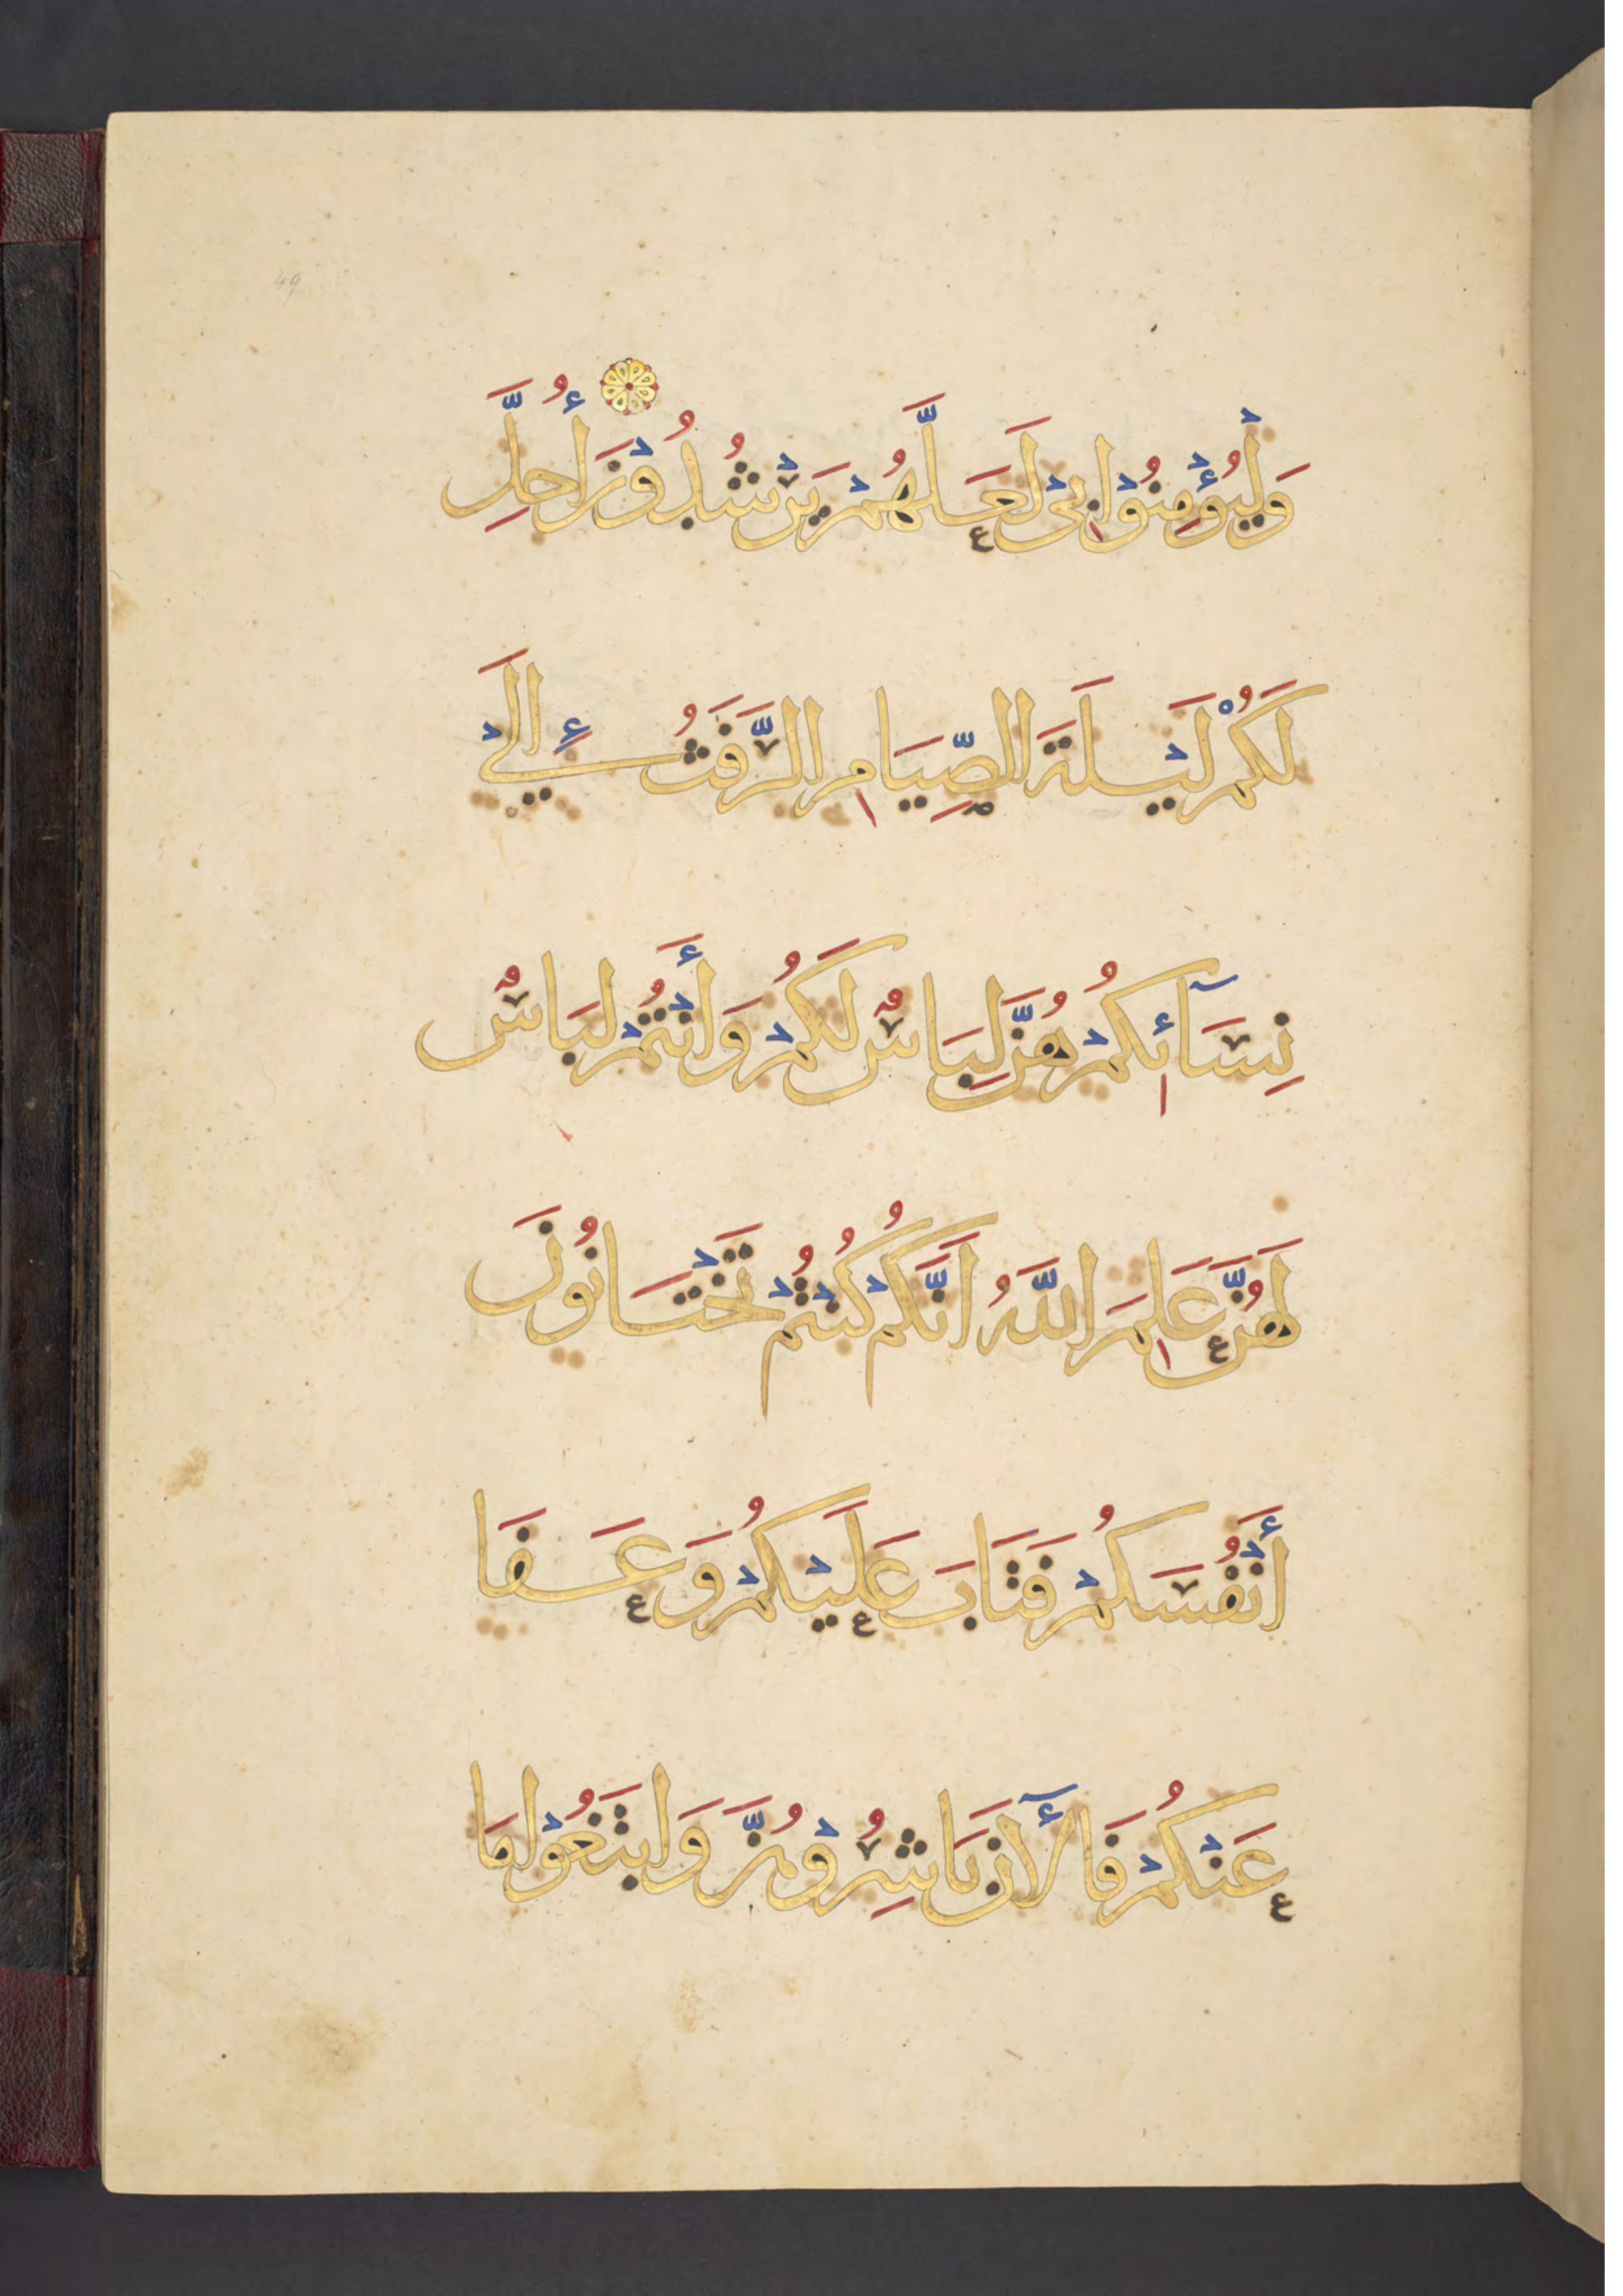 49
وَلْيُؤْمِنُوْا بِيْ لَعَلَّهُمْ يَرْشُدُوْنَ أُحِلَّ
لَكُمْ لَيْلَةَ الصِّيَامِ الرَّفَثُ إِلَيْ
نِسَآئِكُمْ هُنَّ لِبَاسٌ لَكُمْ وَأَنْتُمْ لِبَاسٌ
لَهُنَّ عَلِمَ اللَّهُ اَنَّكُمْ كُنْتُمْ تَخْتَانُونَ
أَنْفُسَكُمْ فَتَابَ عَلَيْكُمْ وَعَفَا
عَنْكُمْ فَالْآنَ بَاشِرُوْهُنَّ وَابْتَغُوْا مَا